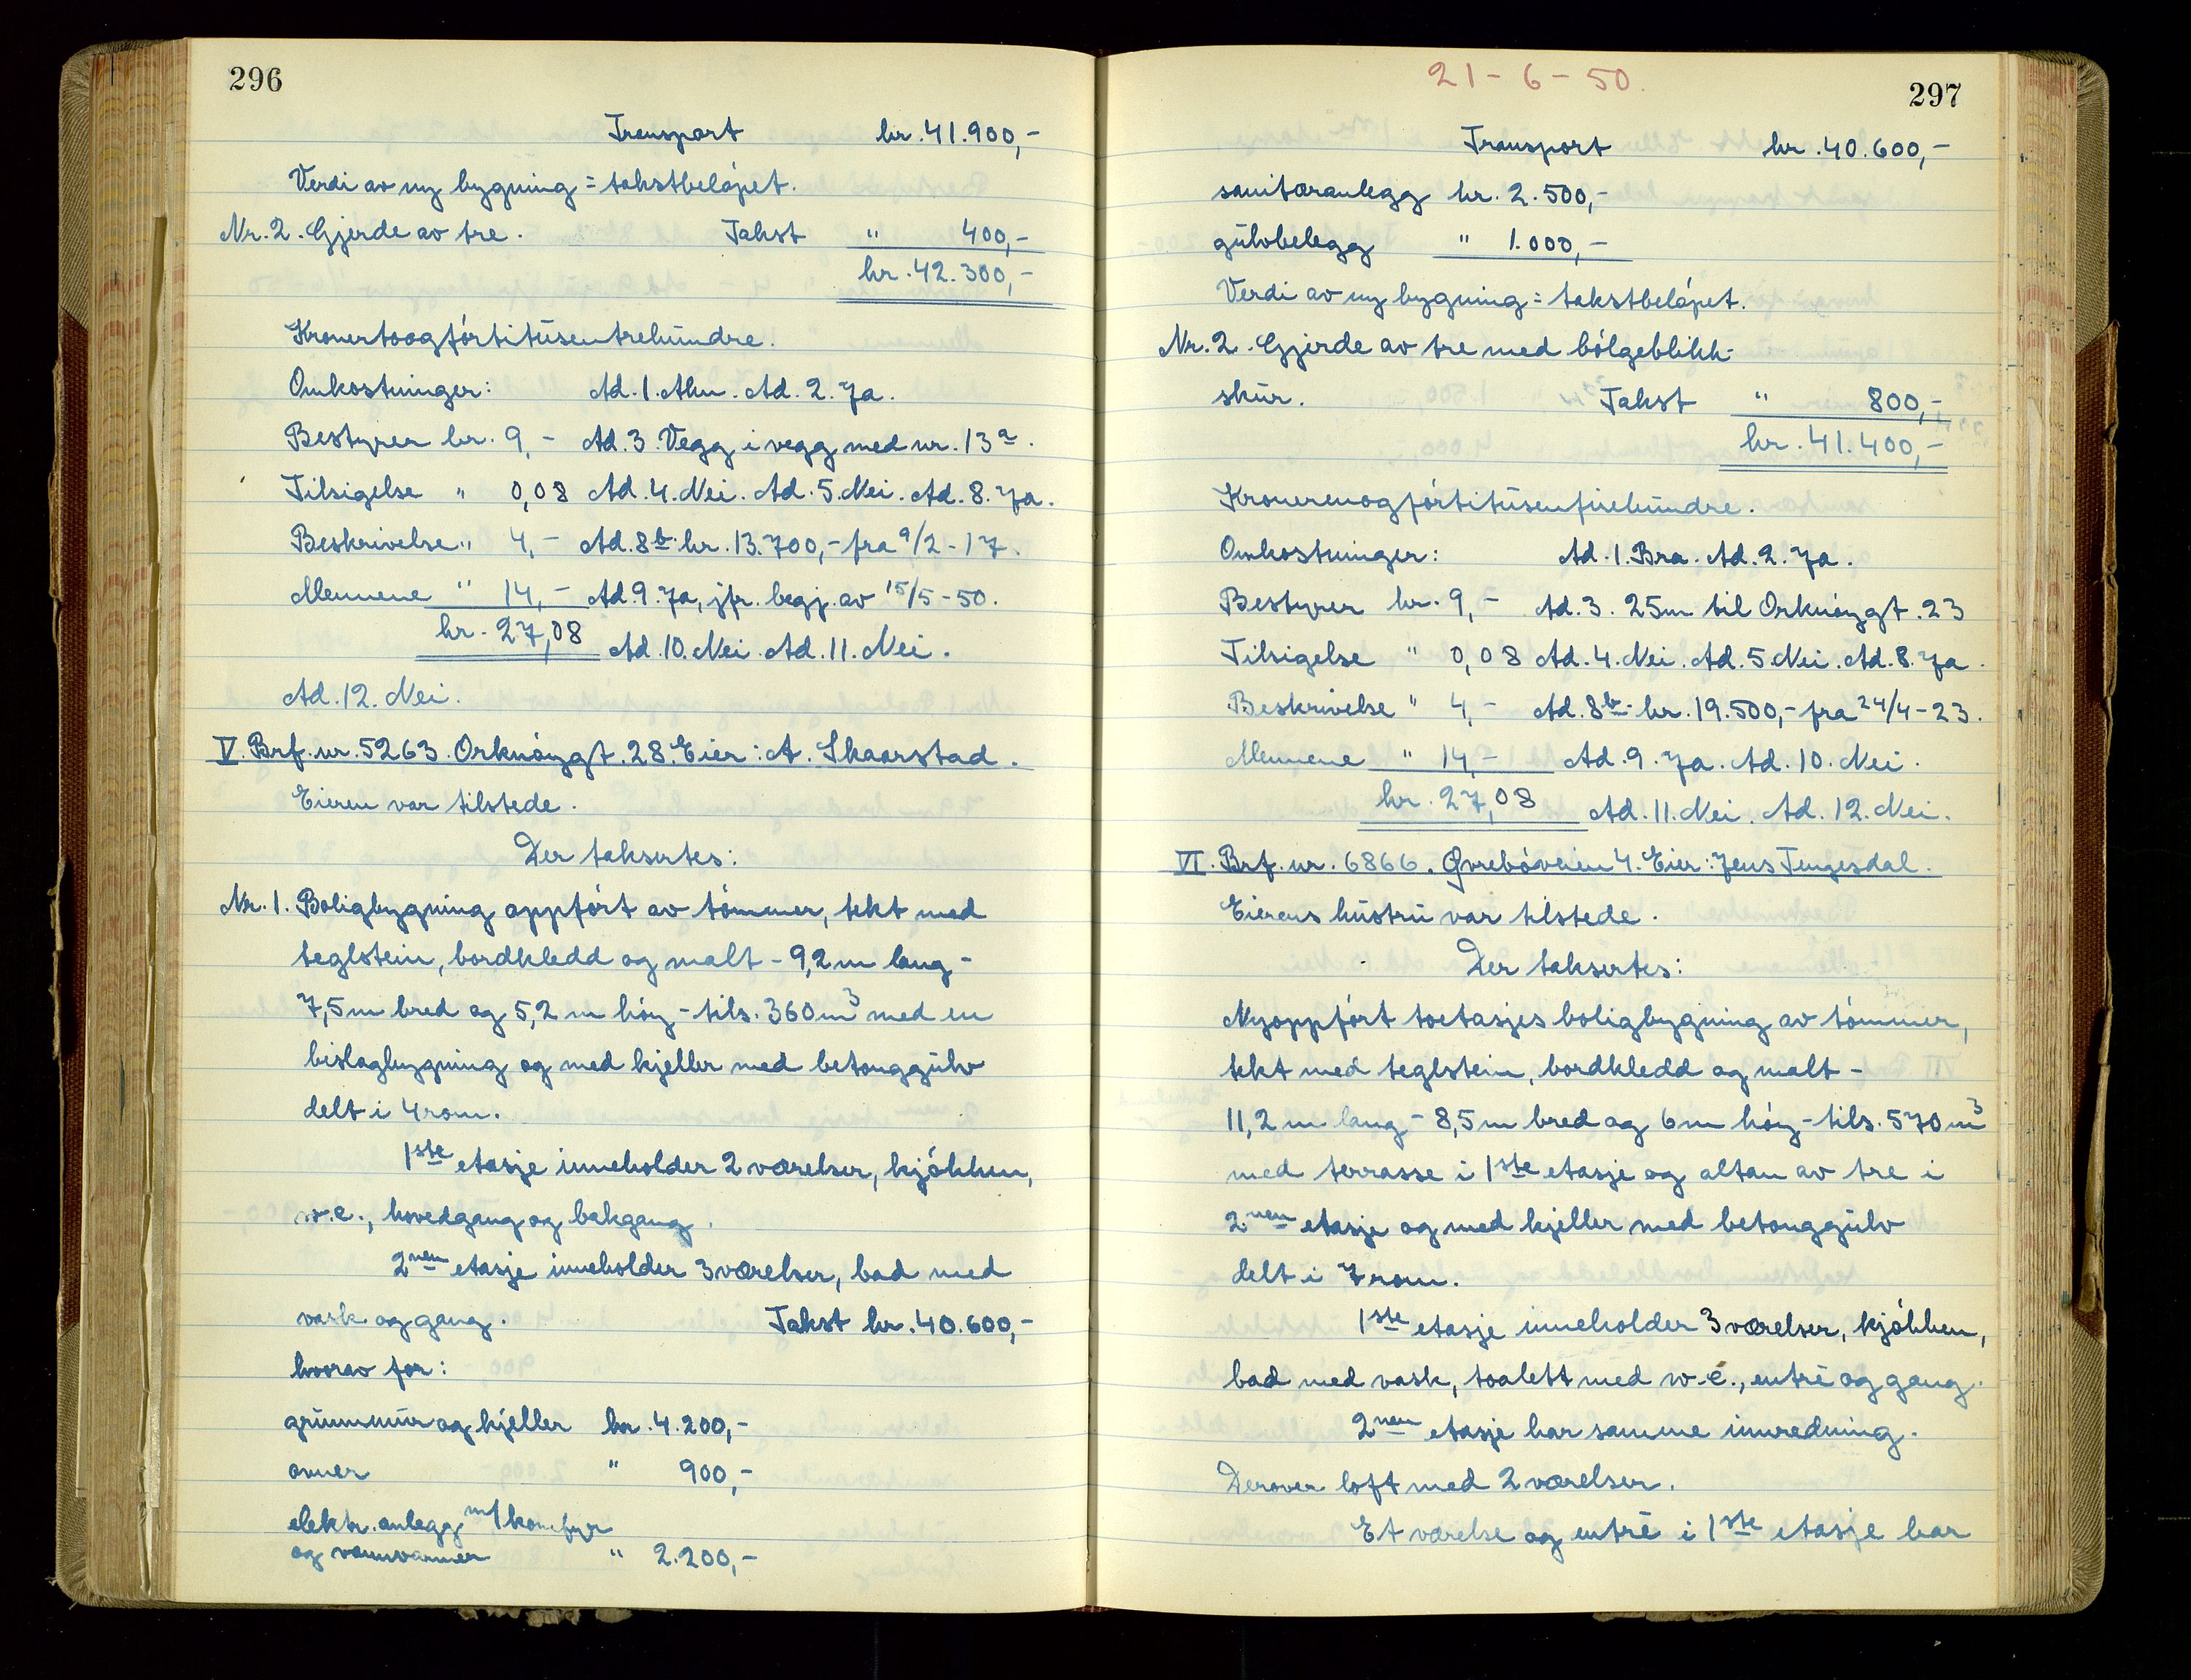 296
Transport kr. 41.900,-
Verdi av ny bygning = takstbeløpet.
Nr. 2. Gjerde av tre. Takst " 400,-
kr. 42.300,-
Kronertoogførtitusentrehundre.
Omkostninger: Ad. 1. Alm. Ad. 2. Ja.
Bestyrer kr. 9,- Ad. 3. Vegg i vegg med nr. 13a.
Tilsigelse " 0,08 Ad. 4. Nei. Ad. 5. Nei. Ad. 8. Ja.
Beskrivelse " 4,- Ad. 8b. kr. 13.700,- fra 9/2-17.
Mennene " 14,- Ad. 9. Ja, jfr. begj. av 15/5-50.
kr. 27,08 Ad. 10. Nei. Ad. 11. Nei.
Ad. 12. Nei.
V. Brf. nr. 5263. Orknøygt. 28. Eier: A. Skaarstad.
Eieren var tilstede.
Der taksertes:
Nr. 1. Boligbygning oppført av tømmer, tekt med
teglstein, bordkledd og malt - 9,2 m lang -
7,5 m bred og 5,2 m høy - tils. 360 m3 med en
bislagbygning og med kjeller med betonggulv
delt i 4 rom.
1ste etasje inneholder 2 værelser, kjøkken,
w.c., hovedgang og bakgang.
2nen etasje inneholder 3 værelser, bad med
vask og gang. Takst kr. 40.600,-
hvorav for:
grunnmur og kjeller kr. 4.200,-
ovner " 900,-
elektr. anlegg m/komfyr
og vannvarmer " 2.200,-
21-6-50.
297
Transport kr. 40.600,-
sanitæranlegg kr. 2.500,-
gulvbelegg " 1.000,-
Verdi av ny bygning = takstbeløpet.
Nr. 2. Gjerde av tre med bølgeblikk-
skur. Takst " 800,-
kr. 41.400,-
Kronerenogførtitusenfirehundre.
Omkostninger: Ad. 1. Bra. Ad. 2. Ja.
Bestyrer kr. 9,- Ad. 3. 25m til Orknøygt. 23
Tilsigelse " 0,08 Ad. 4. Nei. Ad. 5. Nei. Ad. 8. Ja.
Beskrivelse " 4,- Ad. 8b. kr. 19.500,- fra 24/4-23.
Mennene " 14,- Ad. 9. Ja. Ad. 10. Nei.
kr. 27,08 Ad. 11. Nei. Ad. 12. Nei.
VI. Brf. nr. 6866. Øvrebøveien 4. Eier: Jens Tengesdal.
Eierens hustru var tilstede.
Der taksertes:
Nyoppført toetasjes boligbygning av tømmer,
tekt med teglstein, bordkledd og malt -
11,2 m lang - 8,5 m bred og 6 m høy - tils. 570 m3
med terrasse i 1ste etasje og altan av tre i
2nen etasje og med kjeller med betonggulv
delt i 7 rom.
1ste etasje inneholder 3 værelser, kjøkken,
bad med vask, toalett med w.c., entré og gang.
2nen etasje har samme innredning.
Derover loft med 2 værelser.
Et værelse og entré i 1ste etasje har